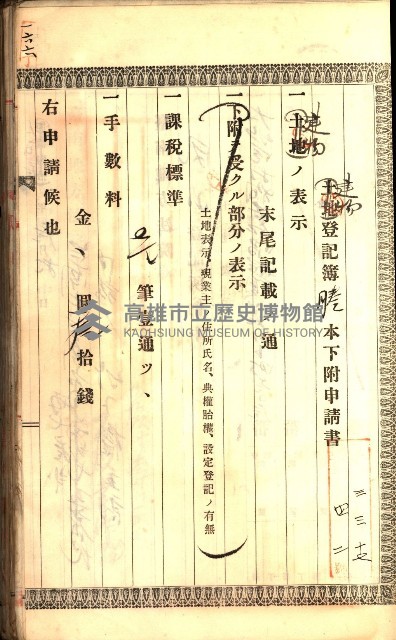 一六六
建物
土地登記簿謄本下附申請書
一土地ノ表示
建物
末尾記載ノ通
一下附ヲ受クル部分ノ表示
土地表示、現業主ノ住所氏名、典權胎權、設定登記ノ有無
一課稅標準
筆壹通ツヽ
一手數料
金、圓 拾錢
右申請候也
高雄市立歷史博物館
KAOHSIUNG MUSEUM OF HISTORY